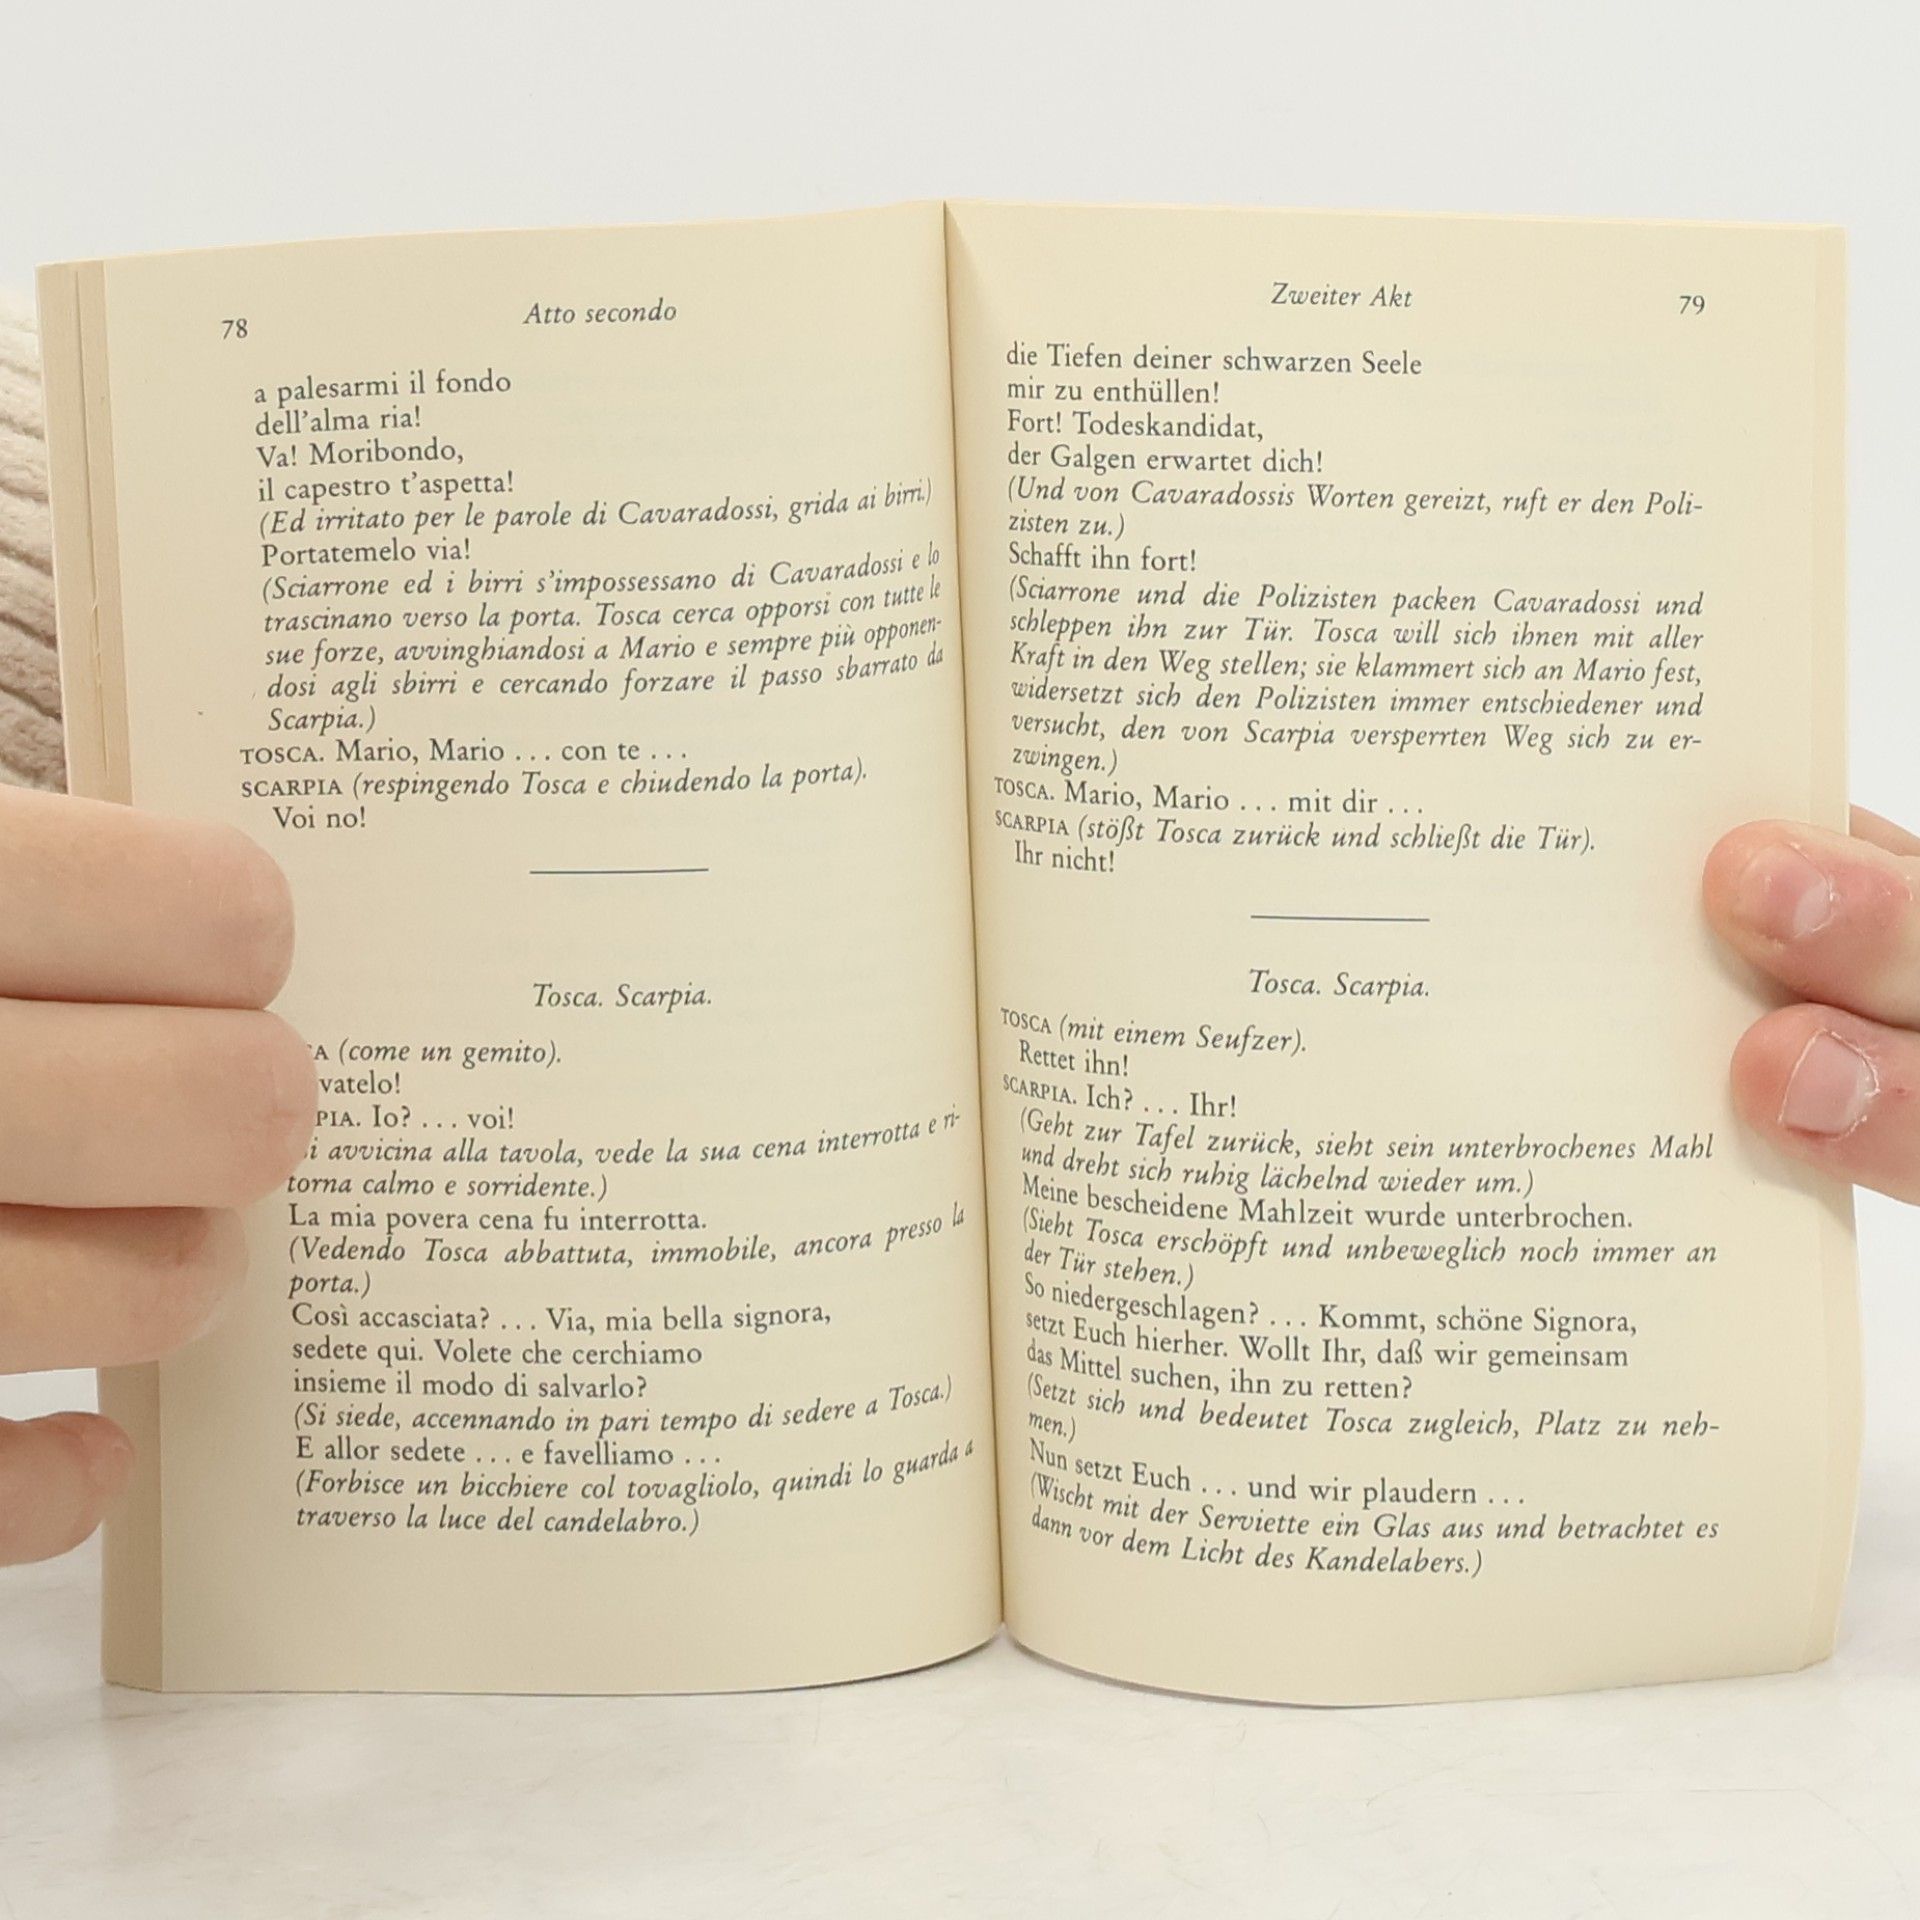 78
Atto secondo
a palesarmi il fondo
dell'alma ria!
Va! Moribondo,
il capestro t'aspetta!
(Ed irritato per le parole di Cavaradossi, grida ai birri.)
Portatemelo via!
(Sciarrone ed i birri s'impossessano di Cavaradossi e lo
trascinano verso la porta. Tosca cerca opporsi con tutte le
sue forze, avvinghiandosi a Mario e sempre più opponen-
dosi agli sbirri e cercando forzare il passo sbarrato da
Scarpia.)
TOSCA. Mario, Mario ... con te ...
SCARPIA (respingendo Tosca e chiudendo la porta).
Voi no!
Tosca. Scarpia.
A (come un gemito).
vatelo!
PIA. Io? ... voi!
i avvicina alla tavola, vede la sua cena interrotta e ri-
torna calmo e sorridente.)
La mia povera cena fu interrotta.
(Vedendo Tosca abbattuta, immobile, ancora presso la
porta.)
Così accasciata? ... Via, mia bella signora,
sedete qui. Volete che cerchiamo
insieme il modo di salvarlo?
(Si siede, accennando in pari tempo di sedere a Tosca.)
E allor sedete ... e favelliamo ...
(Forbisce un bicchiere col tovagliolo, quindi lo guarda a
traverso la luce del candelabro.)
Zweiter Akt
79
die Tiefen deiner schwarzen Seele
mir zu enthüllen!
Fort! Todeskandidat,
der Galgen erwartet dich!
(Und von Cavaradossis Worten gereizt, ruft er den Poli-
zisten zu.)
Schafft ihn fort!
(Sciarrone und die Polizisten packen Cavaradossi und
schleppen ihn zur Tür. Tosca will sich ihnen mit aller
Kraft in den Weg stellen; sie klammert sich an Mario fest,
widersetzt sich den Polizisten immer entschiedener und
versucht, den von Scarpia versperrten Weg sich zu er-
zwingen.)
TOSCA. Mario, Mario ... mit dir ...
SCARPIA (stößt Tosca zurück und schließt die Tür).
Ihr nicht!
Tosca. Scarpia.
TOSCA (mit einem Seufzer).
Rettet ihn!
SCARPIA. Ich? ... Ihr!
(Geht zur Tafel zurück, sieht sein unterbrochenes Mahl
und dreht sich ruhig lächelnd wieder um.)
Meine bescheidene Mahlzeit wurde unterbrochen.
(Sieht Tosca erschöpft und unbeweglich noch immer an
der Tür stehen.)
So niedergeschlagen? ... Kommt, schöne Signora,
setzt Euch hierher. Wollt Ihr, daß wir gemeinsam
das Mittel suchen, ihn zu retten?
(Setzt sich und bedeutet Tosca zugleich, Platz zu neh-
men.)
Nun setzt Euch ... und wir plaudern ...
(Wischt mit der Serviette ein Glas aus und betrachtet es
dann vor dem Licht des Kandelabers.)